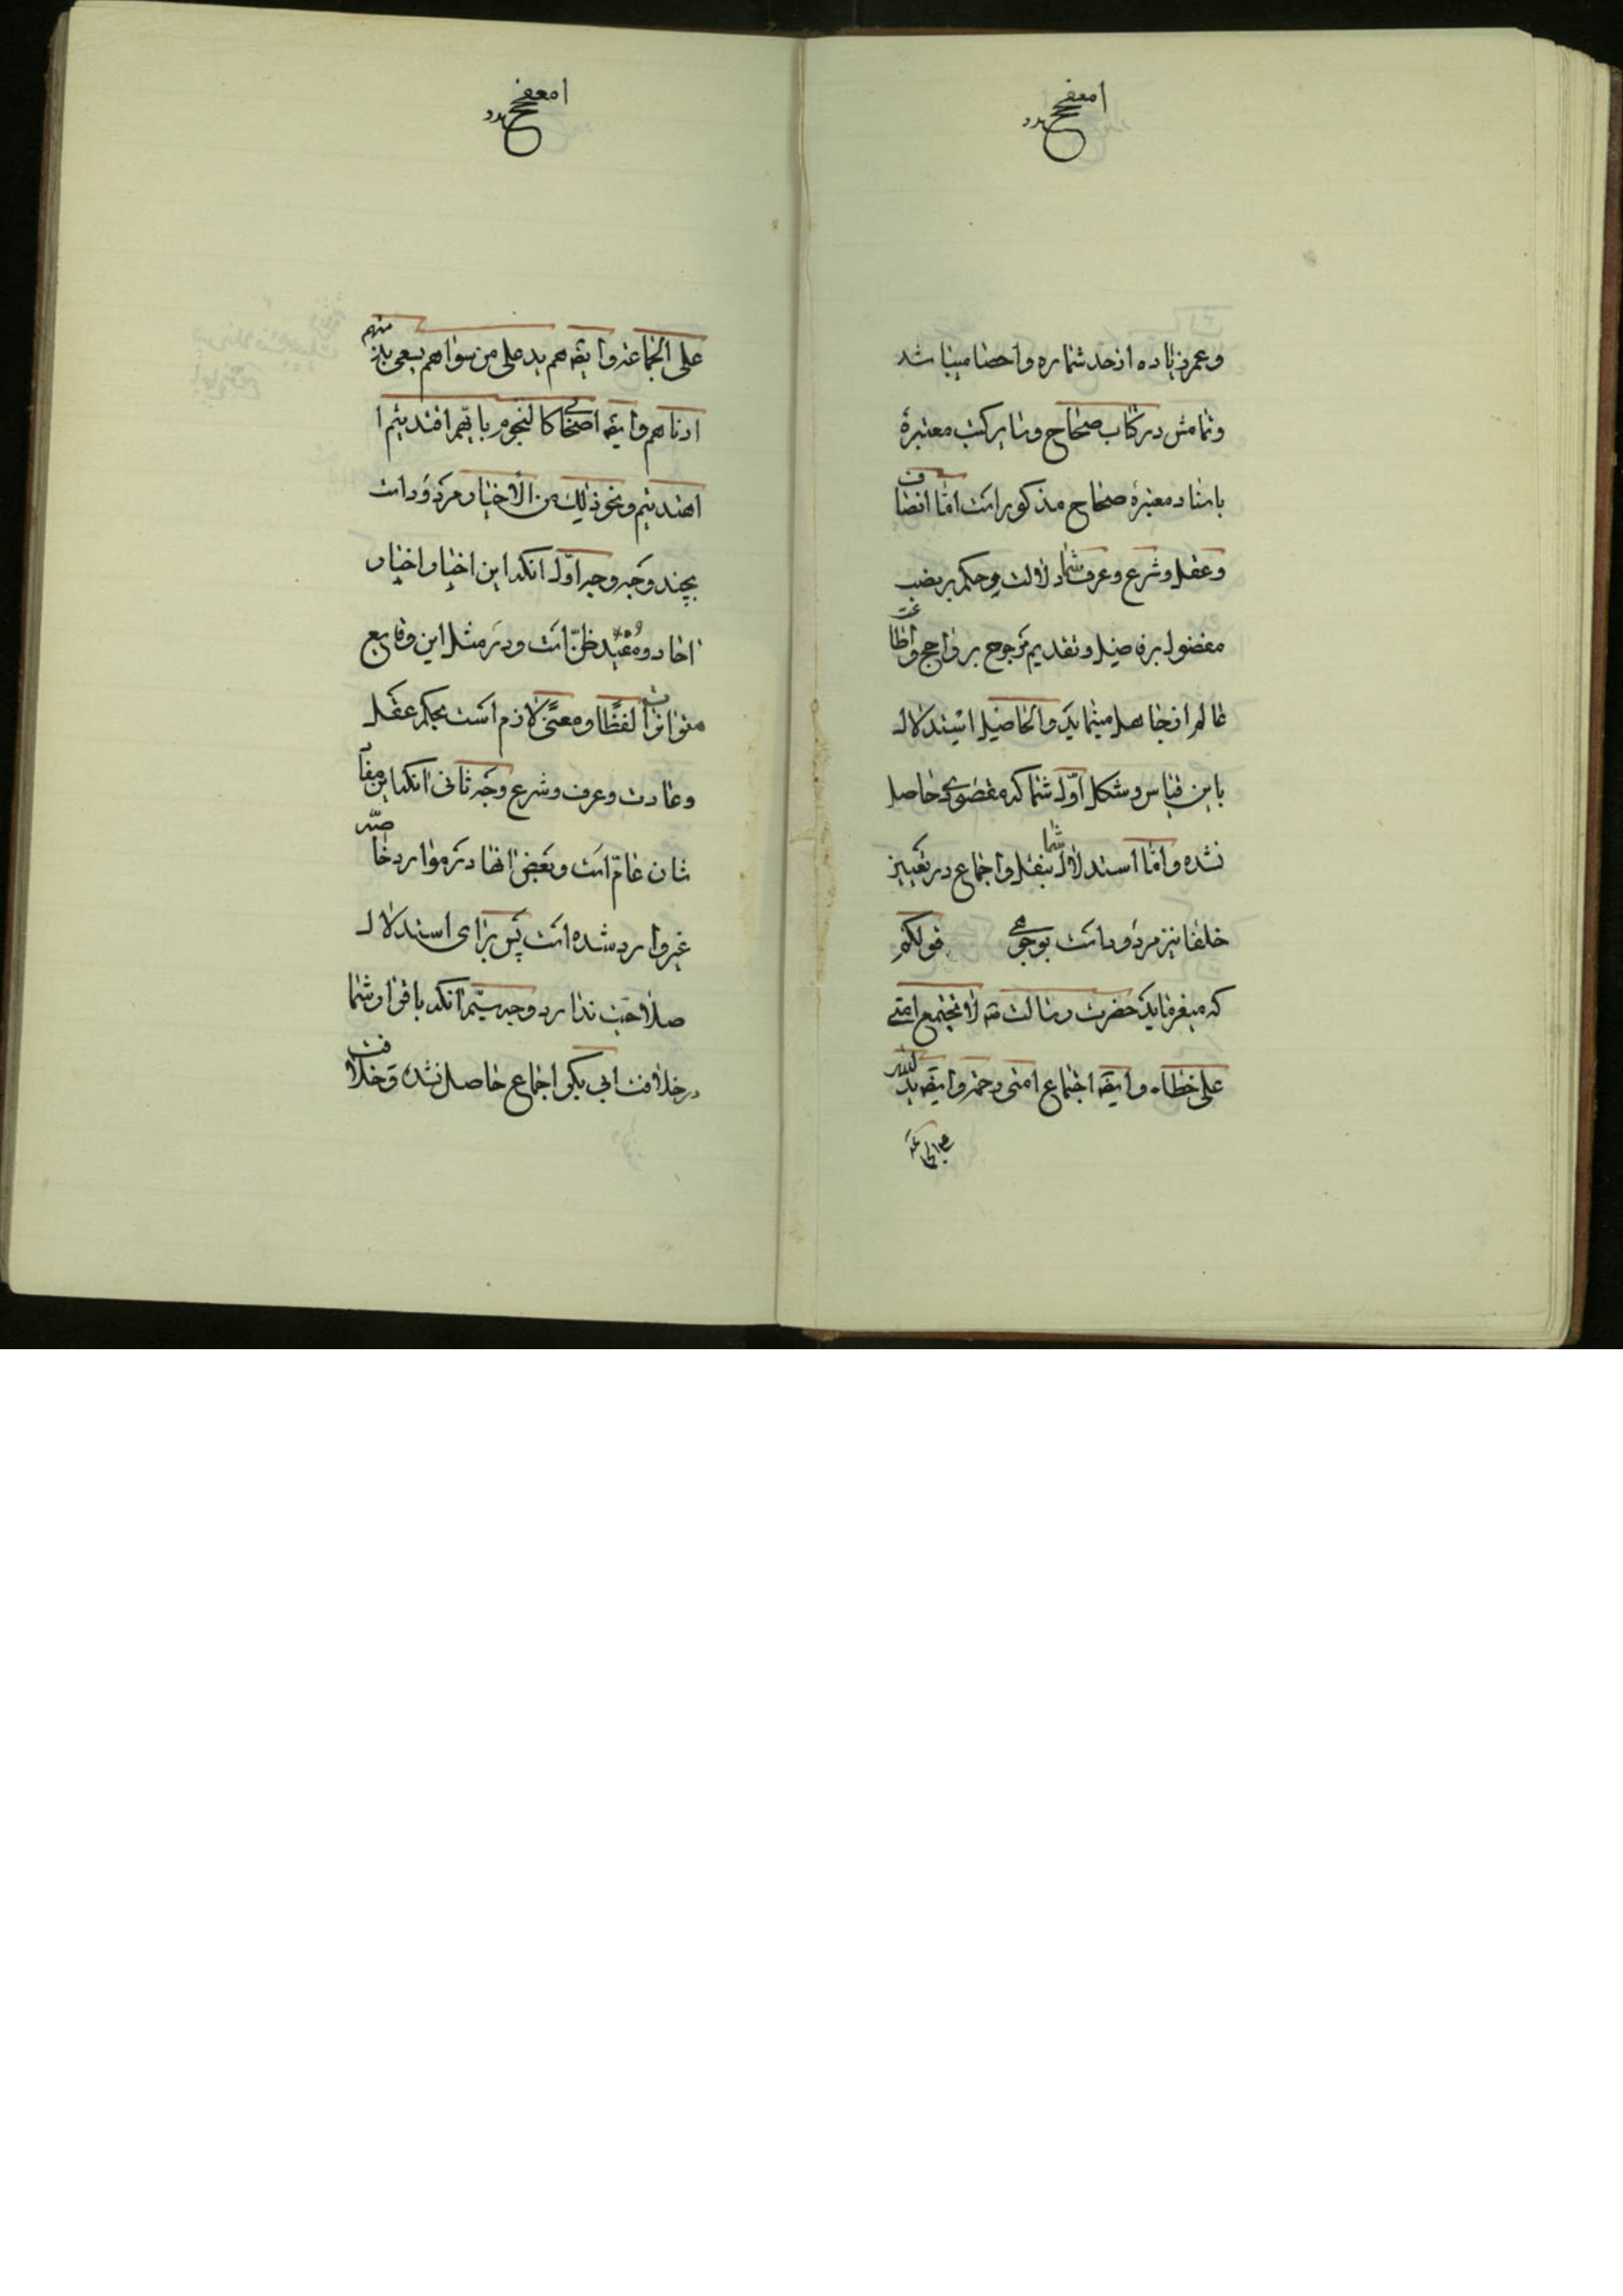 وعمر زیاده از حد شماره و احصا میباشد
و تمامش در کتاب صحاح و سایر کتب معتبرهٔ
باسناد معتبرهٔ صحاح مذکور است اما انصاف
و عقل و شرع و عرف شما دلالت و حکم بر نصب
مفضول بر فاضیل و تقدیم مرجوح بر راجح و اطاعت
عالم از جاهل مینماید والحاصیل استدلال
باین قیاس و شکل اوّل شما که مقصودی حاصل
نشده و اما استدلال شما بنقل و اجماع در تعییز
خلفا نیز مردود است بوجوهی قولکم
که میفرماید حضرت رسالت ته لا تجتمع امتی
علی خطاء وایضه اجتماع امتی رحمة وایضه ید الله
علی الجماعة
علی الجماعة وایضه هم ید علی من سواهم یسعی بذمتهم
ادناهم وایضه اصحابی کالنجوم بایّهم اقتدیتم ا
اهتدیتم و نحو ذلک من الاخبار مردود است
بچند وجه وجه اوّل آنکه این اخبار اخبار
احاد و مفید ظنّ است و در مثل این وقایع
متواترات لفظًا و معنیً لازم است بحکم عقل
و عادت و عرف و شرع وجه ثانی آنکه این مقا
شان عامّ است و بعض آنها در موارد خاصّه
غیر وارد شده است پس برای استدلال
صلاحیت ندارد وجه سیّم آنکه باقرار شما
در خلافت ابی بکر اجماع حاصل نشده و خلافت